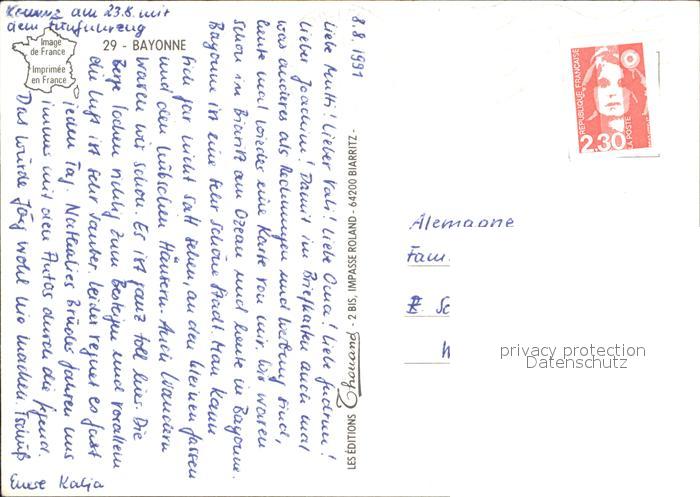 Komme am 23.8. mit
dem
Image
de France
Imprimée
en France
29 - BAYONNE
8.8.1991
Liebe Mutti! Lieber Vati! Liebe Oma! Liebe Gudrun!
Lieber Joachim! Damit im Briefkasten auch mal
was anderes als Rechnungen und Werbung sind,
heute mal wieder eine Karte von mir. Wir waren
schon in Biaritz am Ozean und heute in Bayonne.
Bayonne ist eine sehr schöne Stadt. Man kann
sich gar nicht satt sehen, an den kleinen Gassen
und den hübschen Häusern. Auch wandern
waren wir schon. Es ist ganz toll hier. Die
Berge locken richtig zum Besteigen und vorallem
die Luft ist sehr sauber. Leider regnet es fast
jeden Tag. Nathalies Brüder fahren uns
immer mit den Autos durch die Gegend.
Das würde Jörg wohl nie machen. Tschüß
Eure Katja
LES ÉDITIONS - 2 BIS, IMPASSE ROLAND - 64200 BIARRITZ -
REPUBLIQUE FRANÇAISE
2.30
LA POSTE
Alemagne
Fam.
privacy protection
Datenschutz